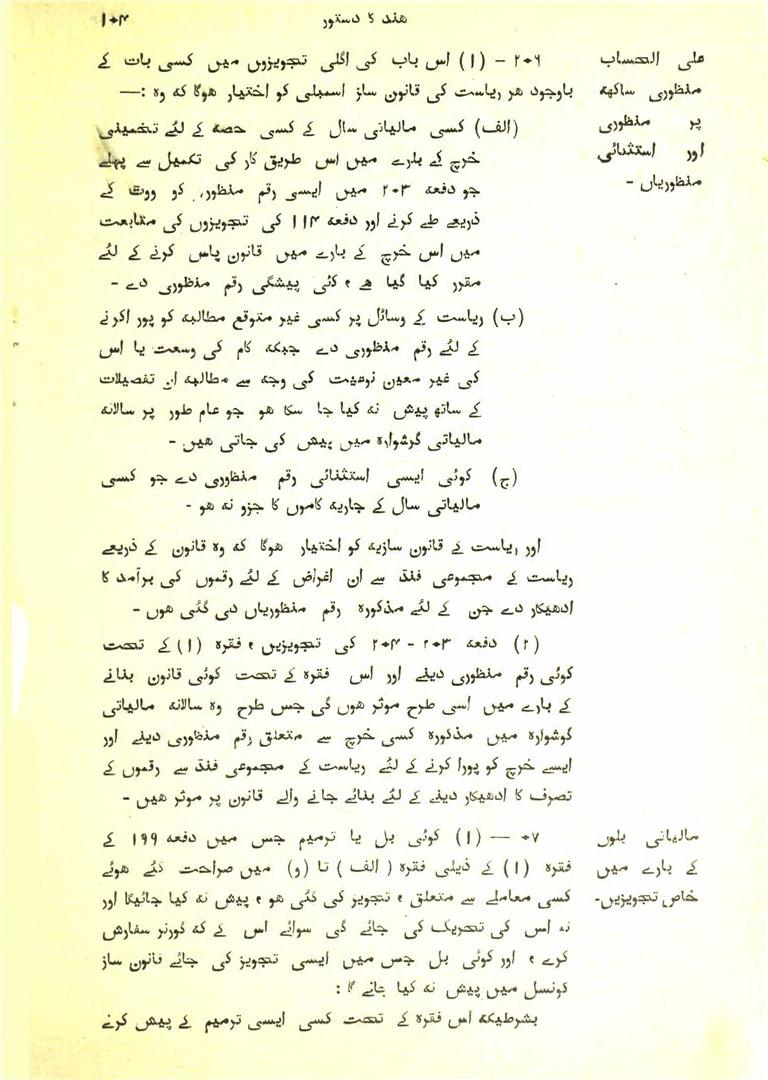 ھند کا دستور
۱۰۴
علی الحساب
منظوری ساکھہ
پر منظوری
اور استثنائی
منظوریاں -
۲۰۶ - (۱) اس باب کی اگلی تجویزوں میں کسی بات کے
باوجود ھر ریاست کی قانون ساز اسمبلی کو اختیار ھوگا کہ وہ :—
(الف) کسی مالیاتی سال کے کسی حصہ کے لئے تخمینی
خرچ کے بارے میں اس طریق کار کی تکمیل سے پہلے
جو دفعہ ۲۰۳ میں ایسی رقم منظوری کو ووٹ کے
ذریعے طے کرنے اور دفعہ ۱۱۴ کی تجویزوں کی متابعت
میں اس خرچ کے بارے میں قانون پاس کرنے کے لئے
مقرر کیا گیا ھے ، کئی پیشگی رقم منظوری دے -
(ب) ریاست کے وسائل پر کسی غیر متوقع مطالبہ کو پورا کرنے
کے لئے رقم منظوری دے جبکہ کام کی وسعت یا اس
کی غیر معین نوعیت کی وجہ سے مطالبہ ان تفصیلات
کے ساتھ پیش نہ کیا جا سکا ھو جو عام طور پر سالانہ
مالیاتی گرشوارہ میں پیش کی جاتی ھیں -
(ج) کوئی ایسی استثنائی رقم منظوری دے جو کسی
مالیاتی سال کے جاریہ کاموں کا جزو نہ ھو -
اور ریاست کے قانون سازیہ کو اختیار ھوگا کہ وہ قانون کے ذریعے
ریاست کے مجموعی فنڈ سے ان اغراض کے لئے رقموں کی برآمد کا
ادھیکار دے جن کے لئے مذکورہ رقم منظوریاں دی گئی ھوں -
(۲) دفعہ ۲۰۳ - ۲۰۴ کی تجویزیں ، فقرہ (۱) کے تحت
کوئی رقم منظوری دینے اور اس فقرہ کے تحت کوئی قانون بنانے
کے بارے میں اسی طرح موثر ھوں گی جس طرح وہ سالانہ مالیاتی
گوشوارہ میں مذکورہ کسی خرچ سے متعلق رقم منظوری دینے اور
ایسے خرچ کو پورا کرنے کے لئے ریاست کے مجموعی فنڈ سے رقموں کے
تصرف کا ادھیکار دینے کے لئے بنائے جانے والے قانون پر موثر ھیں -
مالیاتی بلوں
کے بارے میں
خاص تجویزیں-
۰۷ — (۱) کوئی بل یا ترمیم جس میں دفعہ ۱۹۹ کے
فقرہ (۱) کے ذیلی فقرہ (الف) تا (و) میں صراحت کئے ھوئے
کسی معاملے سے متعلق ، تجویز کی گئی ھو ، پیش نہ کیا جائیگا اور
نہ اس کی تحریک کی جائے گی سوائے اس کے کہ گورنر سفارش
کرے ، اور کوئی بل جس میں ایسی تجویز کی جائے قانون ساز
کونسل میں پیش نہ کیا جائے گا :
بشرطیکہ اس فقرہ کے تحت کسی ایسی ترمیم کے پیش کرنے